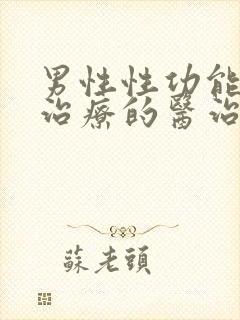 男性性功能
治療的醫治
蘇老頭